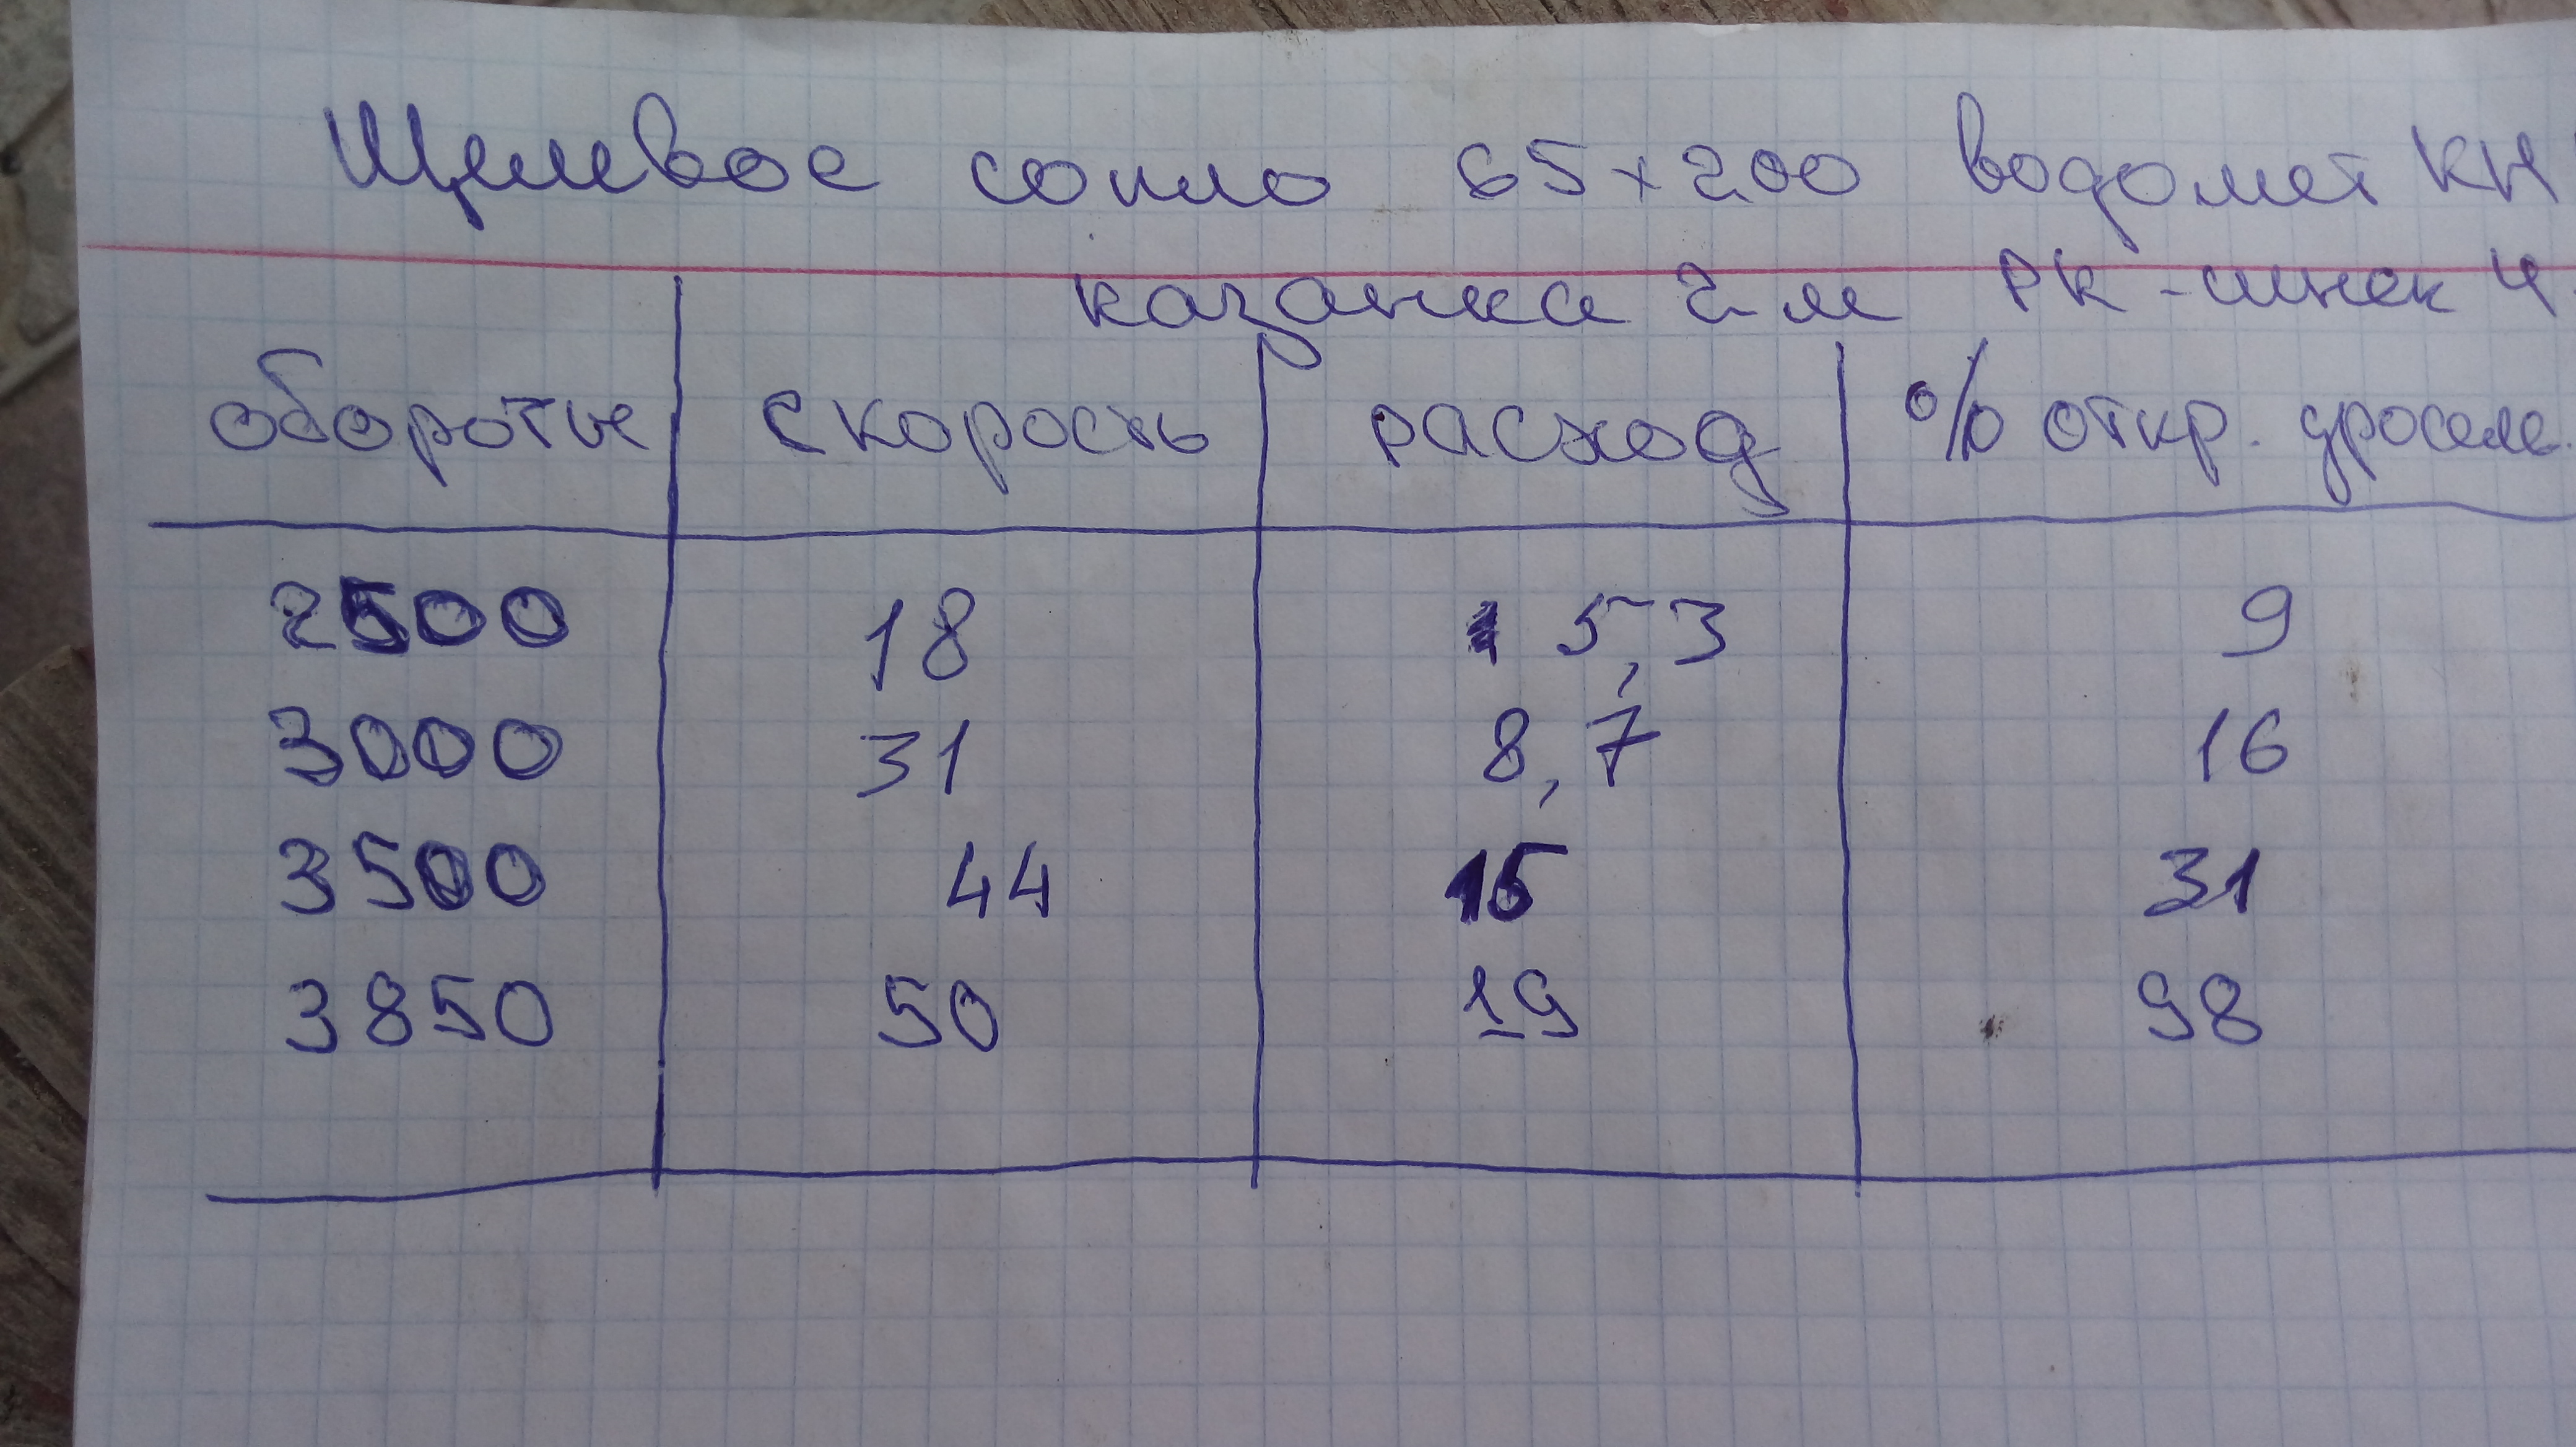 Щелевое сопло 65x200 водомет КН
казанка 2м РК-шнек 4
обороты скорость расход % откр. дросселе
2500 18 5,3 9
3000 31 8,7 16
3500 44 15 31
3850 50 19 98